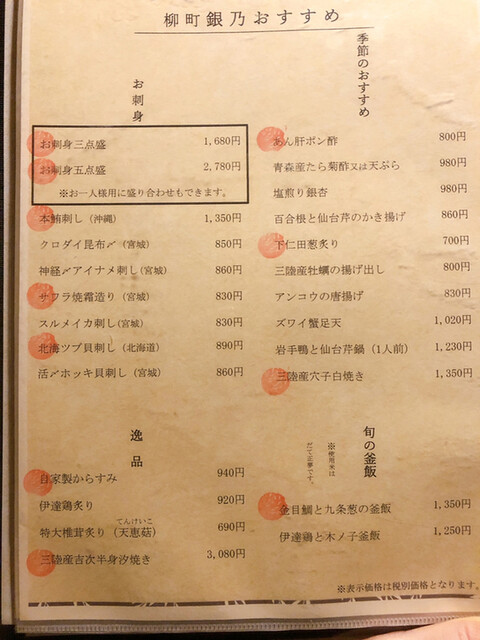 柳町銀乃おすすめ
お刺身
お刺身三点盛 1,680円
お刺身五点盛 2,780円
※お一人様用に盛り合わせもできます。
本鮪刺し（沖縄） 1,350円
クロダイ昆布〆（宮城） 850円
神経〆アイナメ刺し（宮城） 860円
サワラ焼霜造り（宮城） 830円
スルメイカ刺し（宮城） 830円
北海ツブ貝刺し（北海道） 890円
活〆ホッキ貝刺し（宮城） 860円
逸品
自家製からすみ 940円
伊達鶏炙り 920円
てんけいこ
特大椎茸炙り（天恵菇） 690円
三陸産吉次半身汐焼き 3,080円
季節のおすすめ
あん肝ポン酢 800円
青森産たら菊酢又は天ぷら 980円
塩煎り銀杏 980円
百合根と仙台芹のかき揚げ 860円
下仁田葱炙り 700円
三陸産牡蠣の揚げ出し 800円
アンコウの唐揚げ 830円
ズワイ蟹足天 1,020円
岩手鴨と仙台芹鍋（1人前） 1,230円
三陸産穴子白焼き 1,350円
旬の釜飯
※使用米は
だて正夢です。
金目鯛と九条葱の釜飯 1,350円
伊達鶏と木ノ子釜飯 1,250円
※表示価格は税別価格となります。